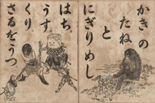 かきの
たね
と
にぎりめし
はち、
うす
くり
さるをうつ